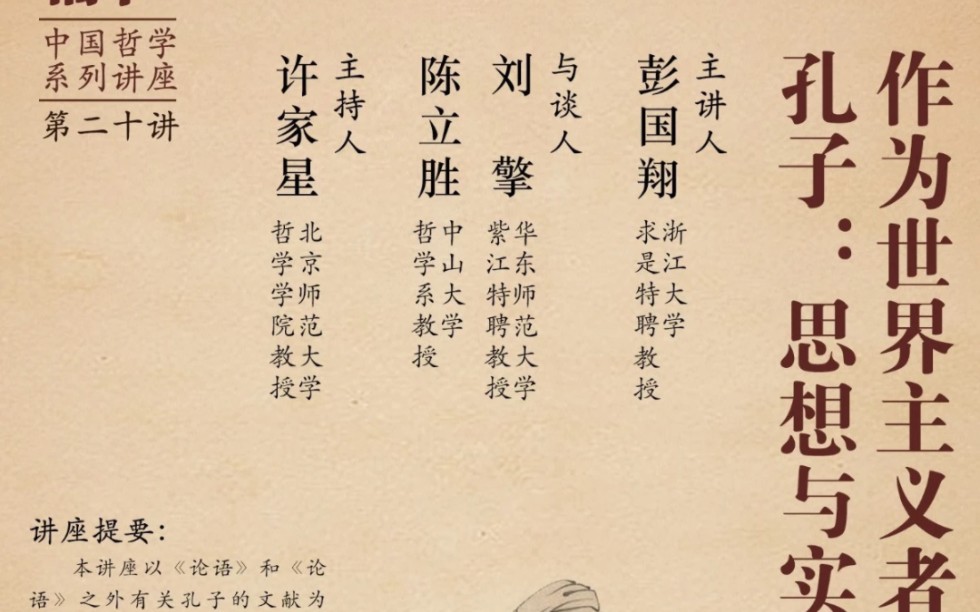 作为世界主义者
孔子：思想与实
主讲人
彭国翔
浙江大学
求是特聘教授
与谈人
刘擎
华东师范大学
紫江特聘教授
陈立胜
中山大学
哲学系教授
主持人
许家星
北京师范大学
哲学学院教授
中国哲学
系列讲座
第二十讲
讲座提要：
本讲座以《论语》和《论
语》之外有关孔子的文献为